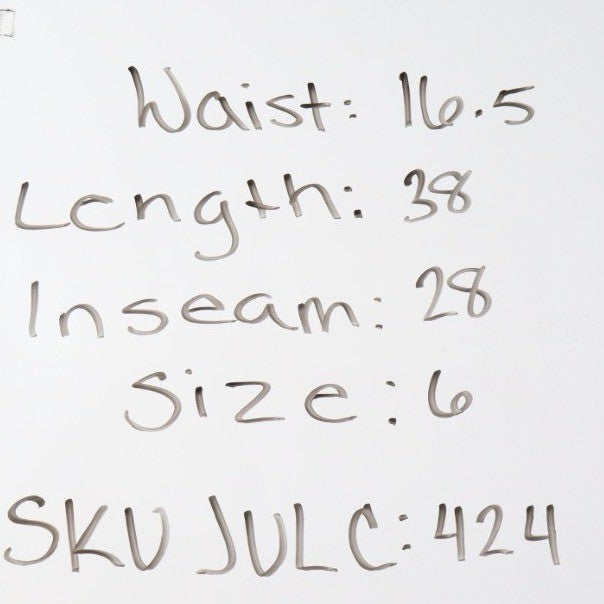 Waist: 16.5
Length: 38
Inseam: 28
Size: 6
SKU JULC: 424